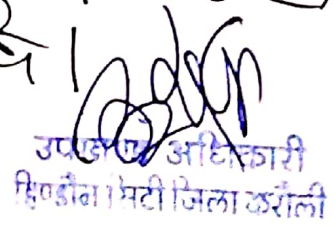 उपखण्ड अधिकारी
हिण्डौन सिटी जिला करौली